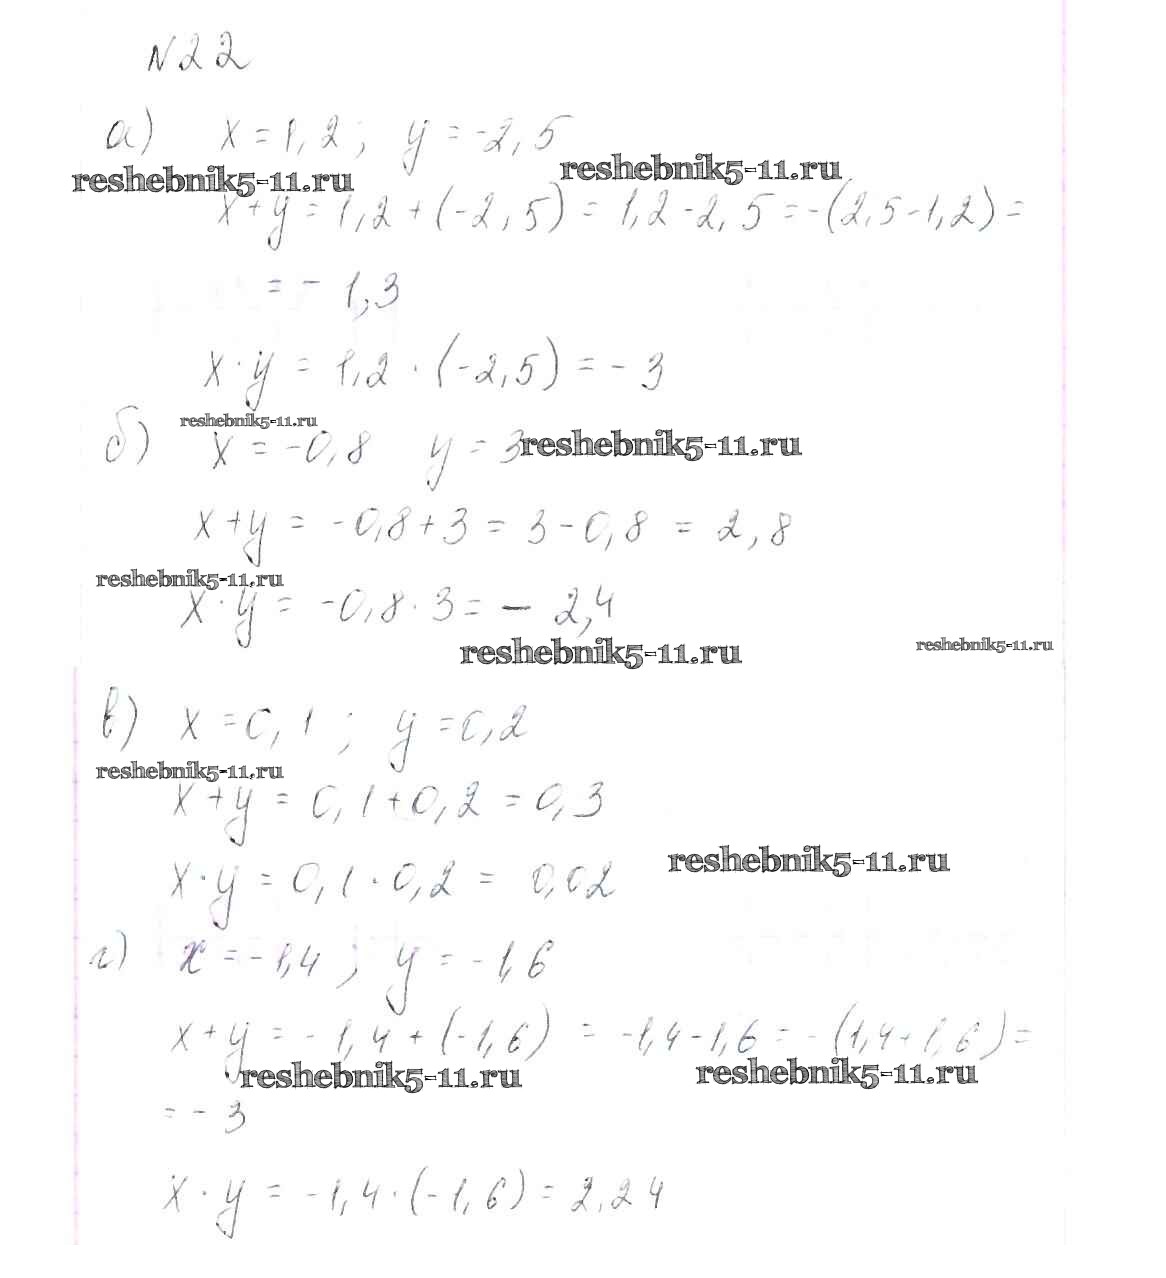 N22
а) x = 1,2; y = -2,5
reshebnik5-11.ru reshebnik5-11.ru
x + y = 1,2 + (-2,5) = 1,2 - 2,5 = -(2,5 - 1,2) =
= - 1,3
x · y = 1,2 · (-2,5) = - 3
reshebnik5-11.ru
б) x = -0,8 y = 3 reshebnik5-11.ru
x + y = -0,8 + 3 = 3 - 0,8 = 2,8
reshebnik5-11.ru
x · y = -0,8 · 3 = - 2,4
reshebnik5-11.ru reshebnik5-11.ru
в) x = 0,1; y = 0,2
reshebnik5-11.ru
x + y = 0,1 + 0,2 = 0,3
reshebnik5-11.ru
x · y = 0,1 · 0,2 = 0,02
г) x = -1,4; y = -1,6
x + y = -1,4 + (-1,6) = -1,4 - 1,6 = -(1,4 + 1,6) =
reshebnik5-11.ru reshebnik5-11.ru
= - 3
x · y = -1,4 · (-1,6) = 2,24